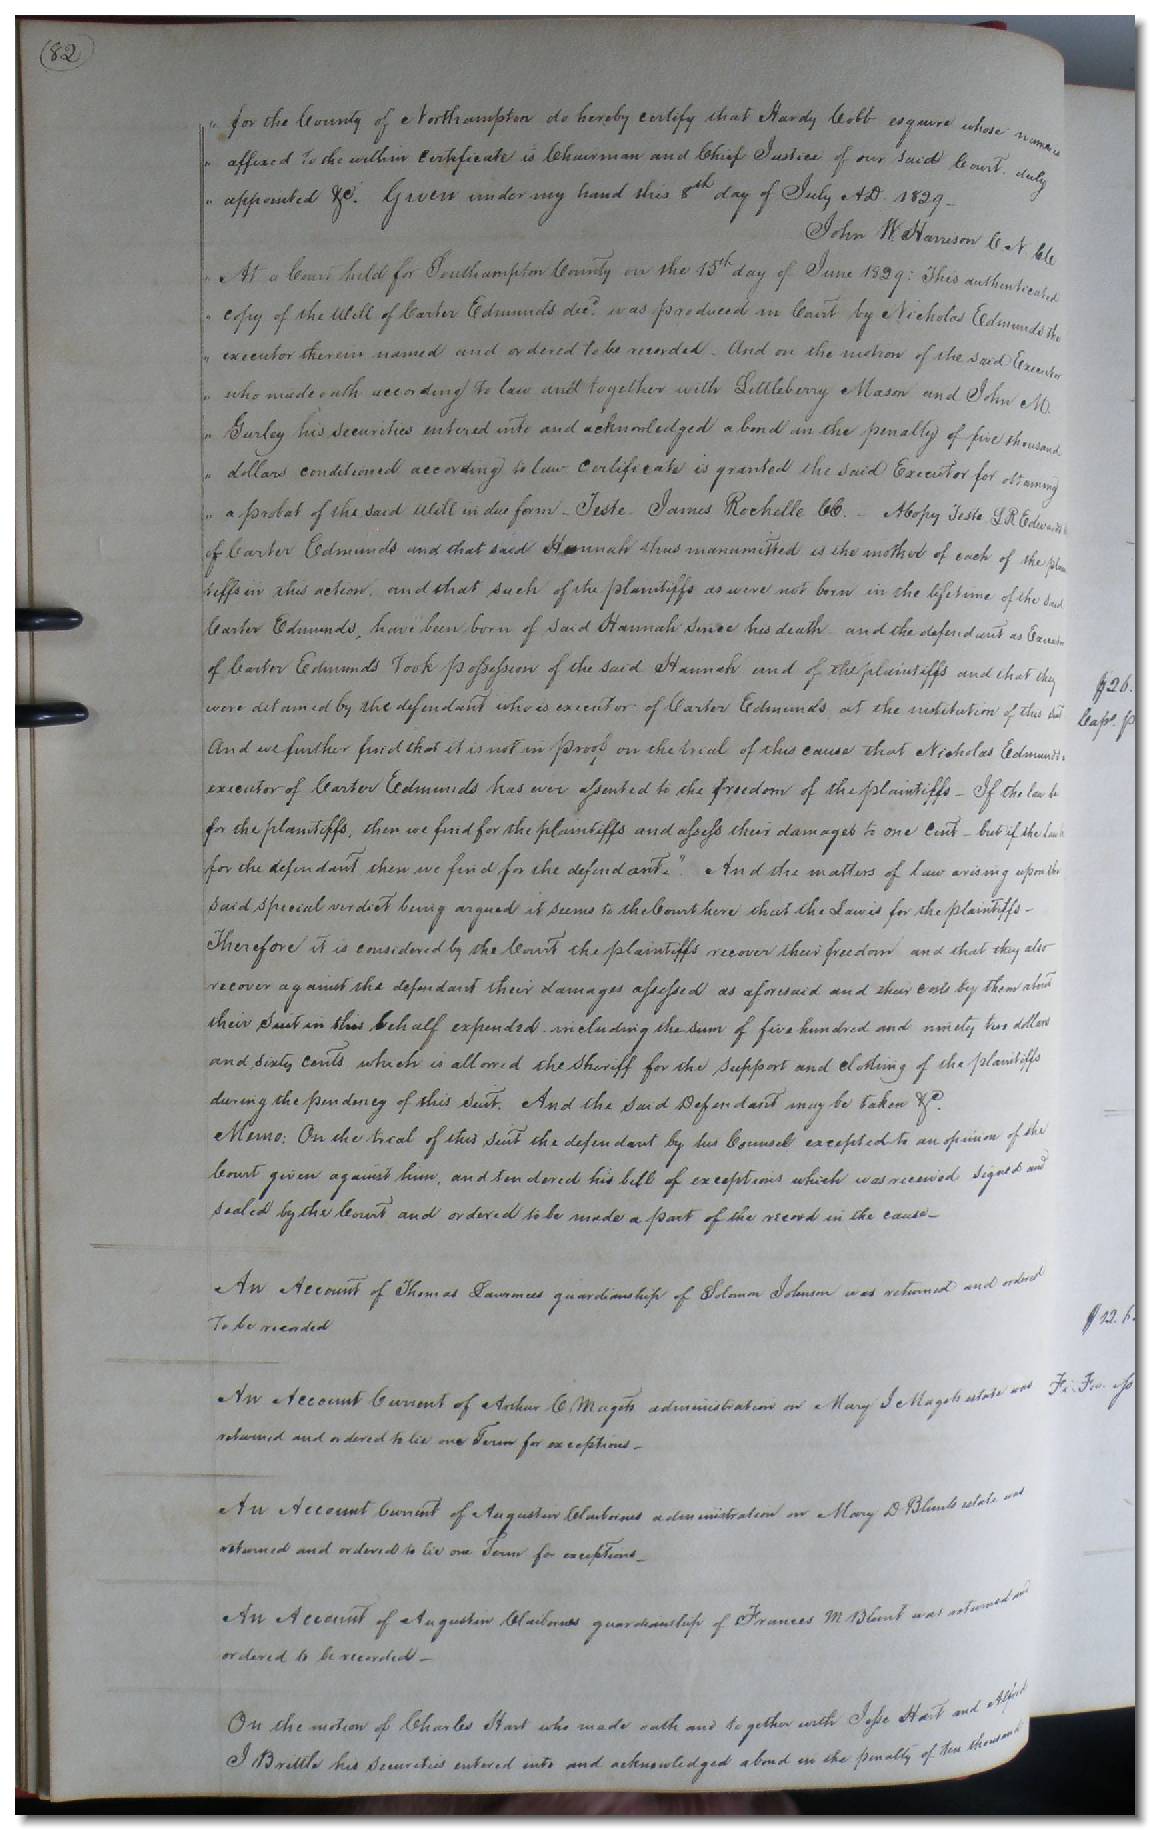 82
" for the County of Northampton do hereby certify that Hardy Cobb esquire whose name is
" affixed to the within certificate is Chairman and Chief Justice of our said Court duly
" appointed &c. Given under my hand this 8th day of July A.D. 1829_
John W. Harrison C N
" At a Court held for Southampton County on the 15th day of June 1829: This authenticated
" copy of the Will of Carter Edmunds decd. was produced in Court by Nicholas Edmunds the
" executor therein named and ordered to be recorded_ And on the motion of the said Executor
" who made oath according to law and together with Littleberry Mason and John M.
" Gurley his securities entered into and acknowledged a bond in the penalty of five thousand
" dollars conditioned according to law certificate is granted the said Executor for obtaining
" a probat of the said Will in due form_ Teste. James Rochelle CC. _ A Copy Teste L R Edwards
of Carter Edmunds and that said Hannah thus manumitted is the mother of each of the plain
tiffs in this action, and that such of the plaintiffs as were not born in the lifetime of the said
Carter Edmunds, have been born of said Hannah since his death and the defendant as Executor
of Carter Edmunds took possession of the said Hannah and of the plaintiffs and that they
were detained by the defendant who is executor of Carter Edmunds at the institution of this suit
And we further find that it is not in proof on the trial of this cause that Nicholas Edmunds
executor of Carter Edmunds has ever assented to the freedom of the plaintiffs_ If the law be
for the plaintiffs, then we find for the plaintiffs and assess their damages to one cent_ but if the law be
for the defendant then we find for the defendant." And the matters of law arising upon the
said special verdict being argued it seems to the Court here that the Law is for the plaintiffs_
Therefore it is considered by the Court the plaintiffs recover their freedom and that they also
recover against the defendant their damages assessed as aforesaid and their costs by them about
their Suit in this behalf expended including the sum of five hundred and ninety two dollars
and sixty cents which is allowed the Sheriff for the support and clothing of the plaintiffs
during the pendency of this suit. And the said Defendant may be taken &c.
Memo: On the trial of this suit the defendant by his Counsel excepted to an opinion of the
Court given against him, and tendered his bill of exceptions which was received signed and
sealed by the Court and ordered to be made a part of the record in the cause_
An Account of Thomas Lawrences guardianship of Solomon Johnson was returned and ordered
to be recorded
An Account Current of Arthur C Magets administration on Mary I Magets estate was
returned and ordered to lie one Term for exceptions_
An Account Current of Augustin Claibornes administration on Mary D Blunts estate was
returned and ordered to lie one Term for exceptions_
An Account of Augustin Claibornes guardianship of Frances M Blunt was returned and
ordered to be recorded_
On the motion of Charles Hart who made oath and together with Jesse Hart and Alfred
I Brittle his securities entered into and acknowledged a bond in the penalty of ten thousand
$26.
$12.
Fi. Fa.